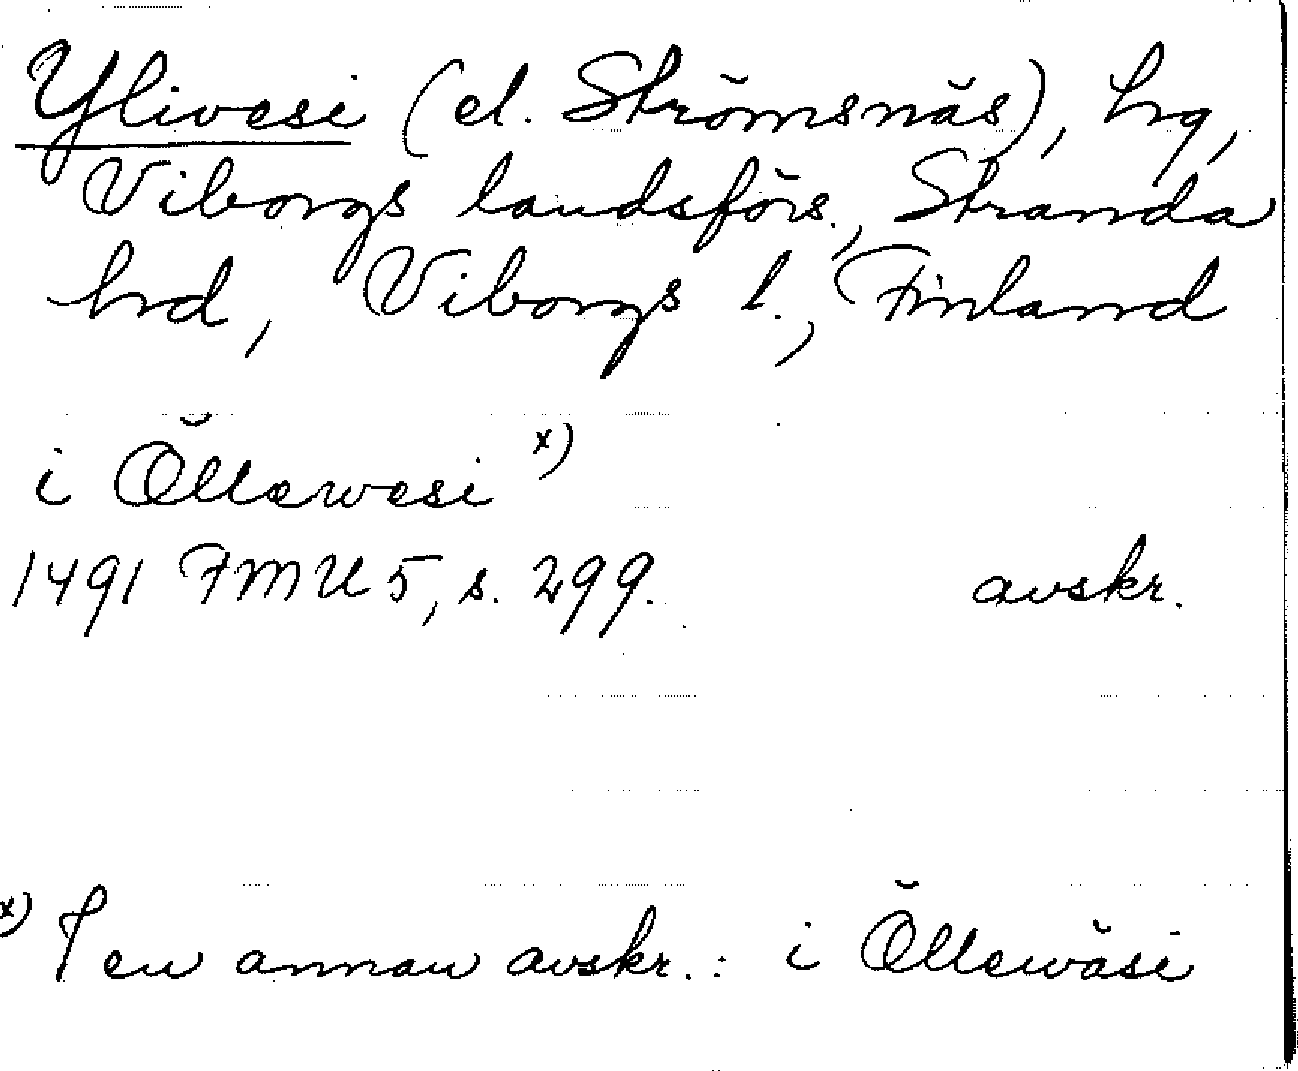 Ylivesi (el. Strömsnäs), hrg,
Viborgs landsförs., Stranda
hrd, Viborgs l., Finland
i Öllewesi x)
1491 FMU 5, s. 299. avskr.
x) I en annan avskr.: i Öllewäsi